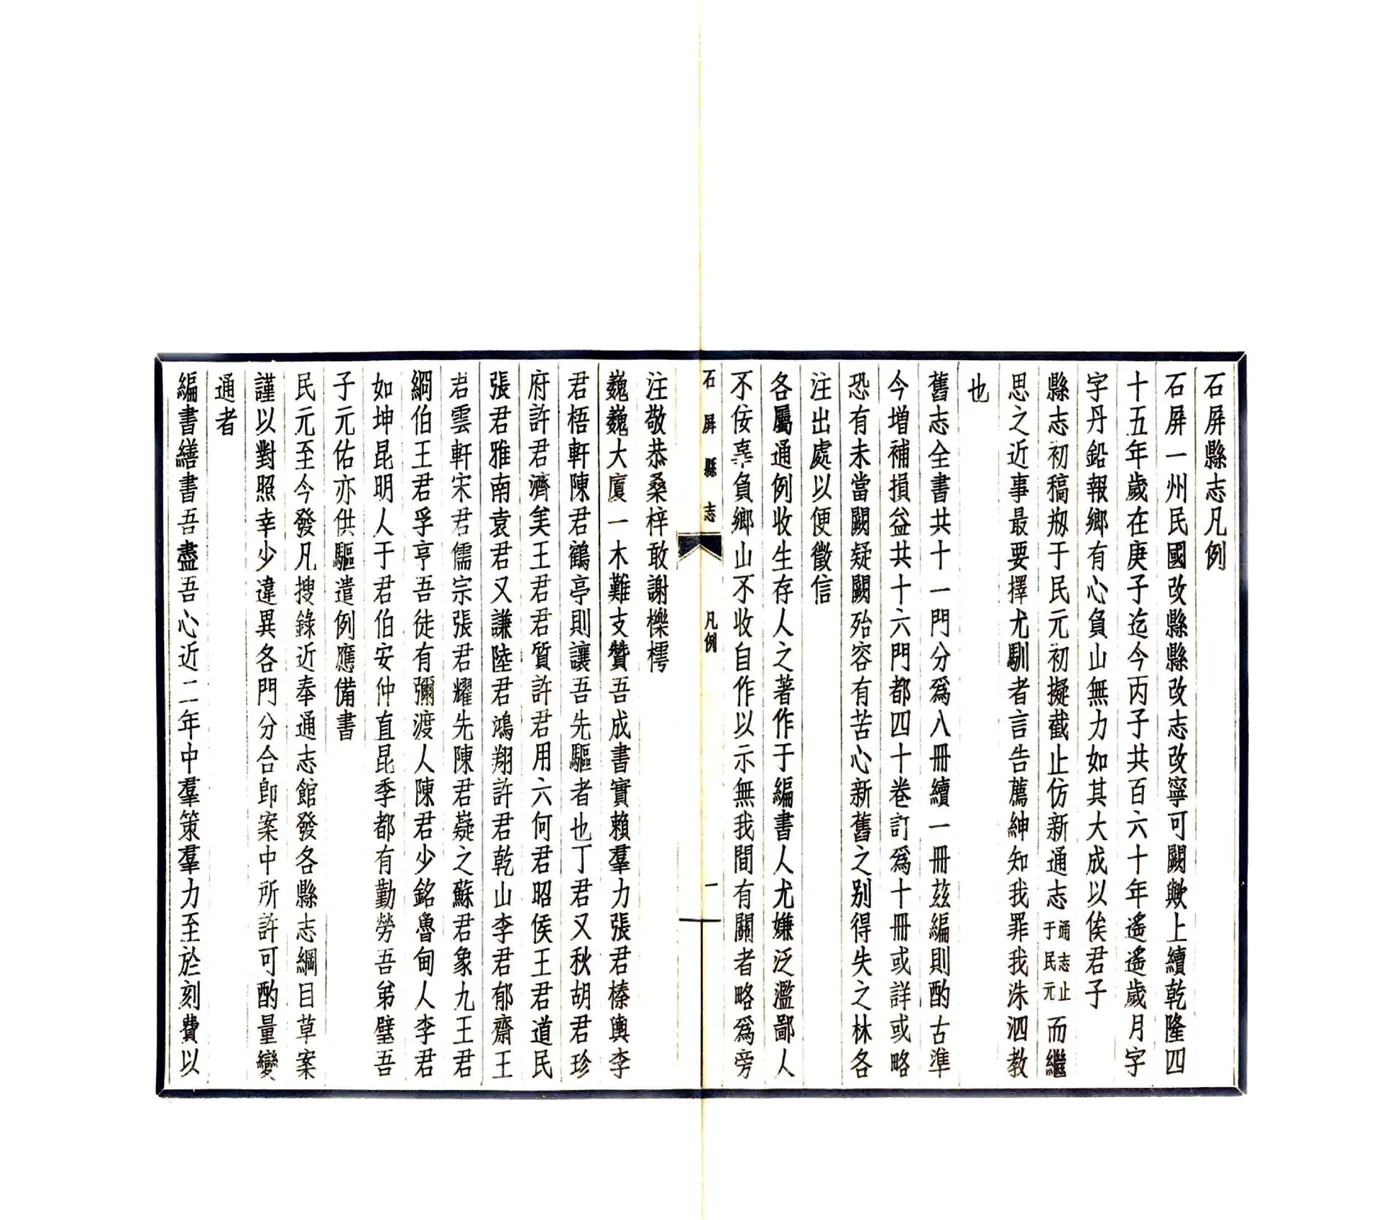 石屏縣志凡例
石屏一州民國改縣縣改志改寧可闕歟上續乾隆四
十五年歲在庚子迄今丙子共百六十年遙遙歲月字
字丹鉛報鄉有心負山無力如其大成以俟君子
縣志初稿剏于民元初擬截止仿新通志通志止于民元而繼
思之近事最要擇尤馴者言告薦紳知我罪我洙泗教
也
舊志全書共十一門分爲八冊續一冊茲編則酌古準
今增補損益共十六門都四十卷訂爲十冊或詳或略
恐有未當闕疑闕殆容有苦心新舊之别得失之林各
注出處以便徵信
各屬通例收生存人之著作于編書人尤嫌泛濫鄙人
不佞辜負鄉山不收自作以示無我間有關者略爲旁
石屏縣志
凡例
一
注敬恭桑梓敢謝櫟樗
巍巍大廈一木難支贊吾成書實賴羣力張君榛輿李
君梧軒陳君鶴亭則讓吾先驅者也丁君又秋胡君珍
府許君濟美王君君質許君用六何君昭侯王君道民
張君雅南袁君又謙陸君鴻翔許君乾山李君郁齋王
君雲軒宋君儒宗張君耀先陳君嶷之蘇君象九王君
綱伯王君孚亨吾徒有彌渡人陳君少銘魯甸人李君
如坤昆明人于君伯安仲直昆季都有勤勞吾弟璧吾
子元佑亦供驅遣例應備書
民元至今發凡搜錄近奉通志館發各縣志綱目草案
謹以對照幸少違異各門分合卽案中所許可酌量變
通者
編書繕書吾盡吾心近二年中羣策羣力至於刻費以